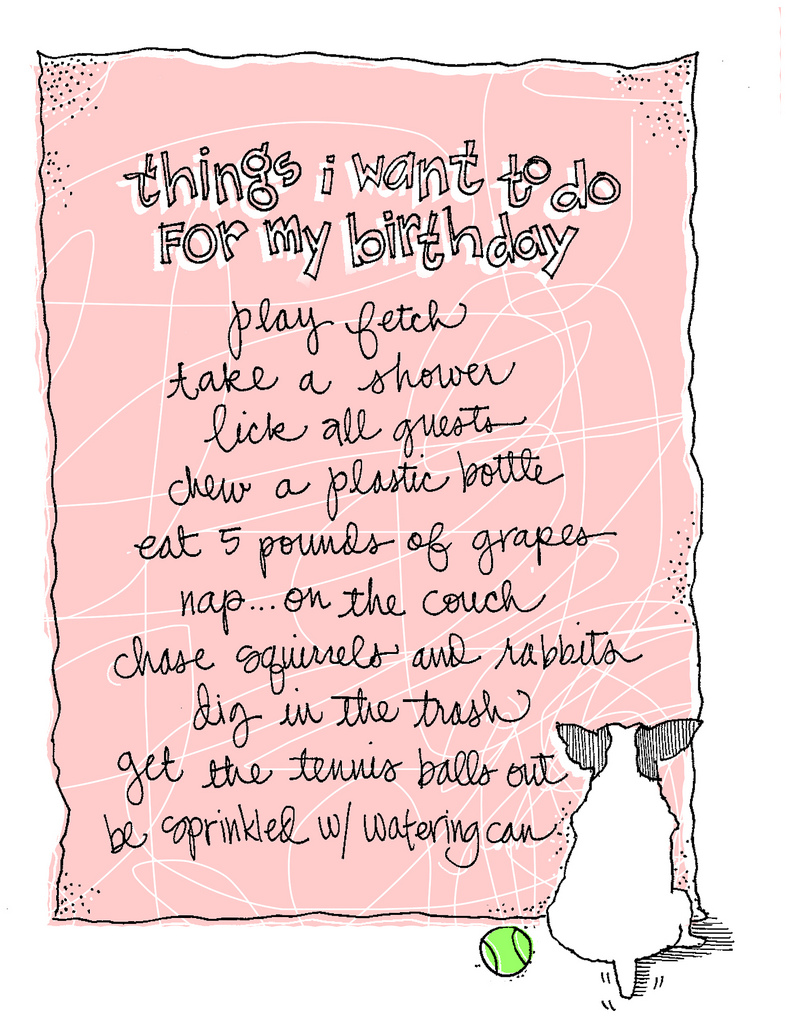 things i want to do
For my birthday
play fetch
take a shower
lick all guests
chew a plastic bottle
eat 5 pounds of grapes
nap... on the couch
chase squirrels and rabbits
dig in the trash
get the tennis balls out
be sprinkled w/ watering can